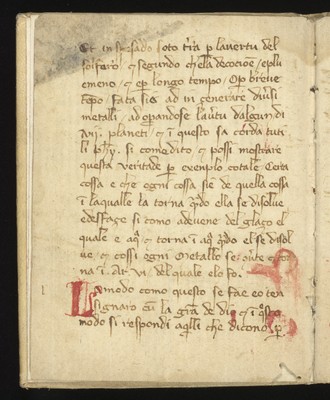 Et in spesado soto tirã p la vertu del
solfaro ⁊ segundo ch̃ ella decocioẽ / e più
e meno / ⁊ per longo tempo / Op̃ breue
tẽpo / fata sie ad in generare diuisi
metalli / ad operandose la v̓tu d alguni di
planeti / ⁊ ĩ questo sa cõrda tuti
li ph̃y. si come dito ⁊ possi mostrare
questa veritade p exenplo cotale. Certa
cossa e che ogni cossa sie de quella cossa
ĩ la qualle la torna q̃do ella se disolue
e desface si como adeuene del glaço el
quale e aq̃ ⁊ torna ĩ aq̃ q̃do el se disol
ue / ⁊ cossi ogni metallo
na ĩ del quale elo fo.
La modo como questo se fae eo ten
signaro cũ la grã de dio ⁊ ĩ questo
modo si respondi aquilli che dicono p